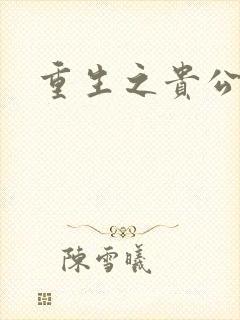 重生之貴公
陳雪曦